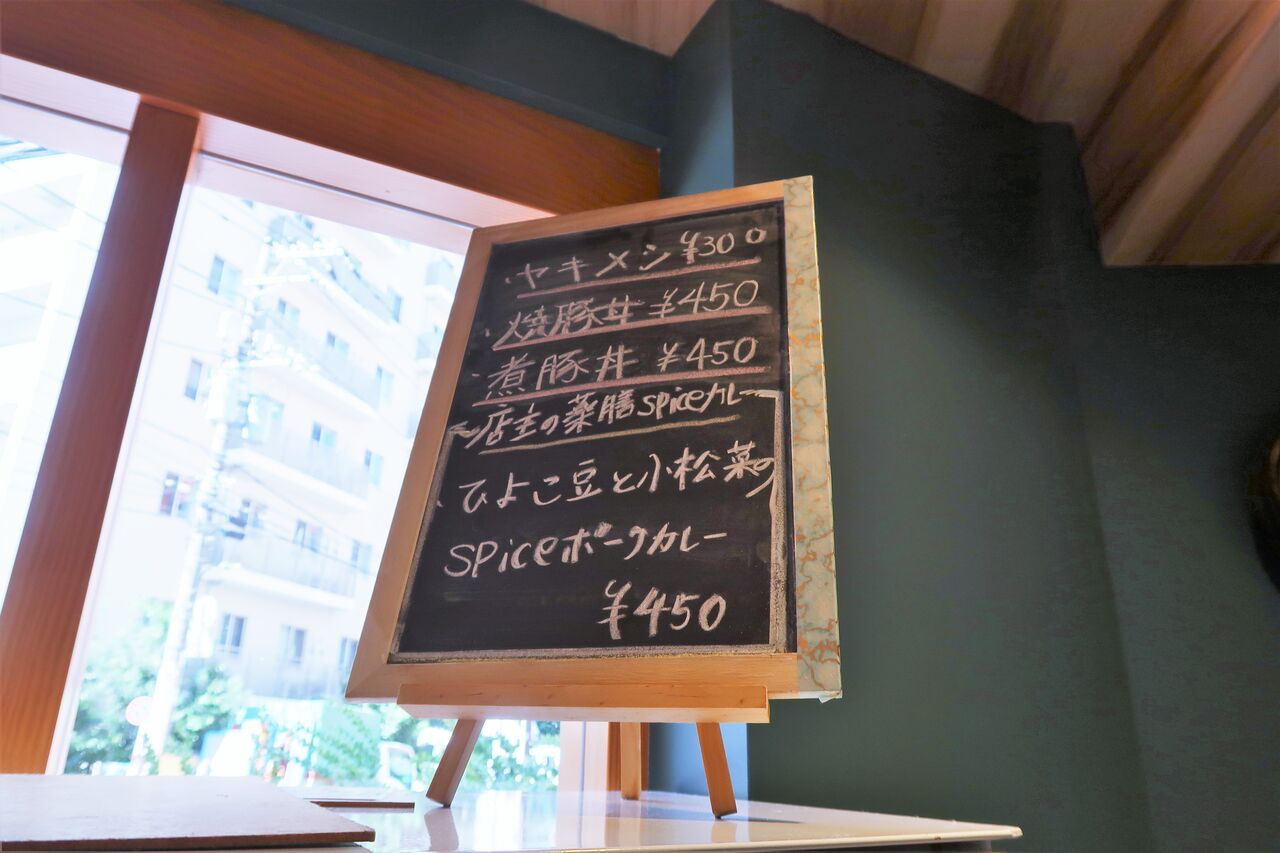 ・ヤキメシ ¥300
・焼豚丼 ¥450
・煮豚丼 ¥450
店主の薬膳spiceカレー
・ひよこ豆と小松菜の
spiceポークカレー
¥450